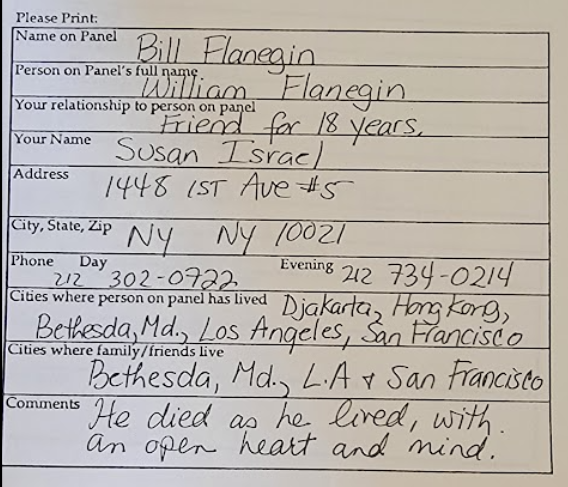 Please Print:
Name on Panel Bill Flanegin
Person on Panel's full name William Flanegin
Your relationship to person on panel
Friend for 18 years.
Your Name Susan Israel
Address 1448 1ST Ave #5
City, State, Zip NY NY 10021
Phone Day 212 302-0722 Evening 212 734-0214
Cities where person on panel has lived Djakarta, Hong Kong,
Bethesda, Md., Los Angeles, San Francisco
Cities where family/friends live
Bethesda, Md., L.A & San Francisco
Comments He died as he lived, with
an open heart and mind.